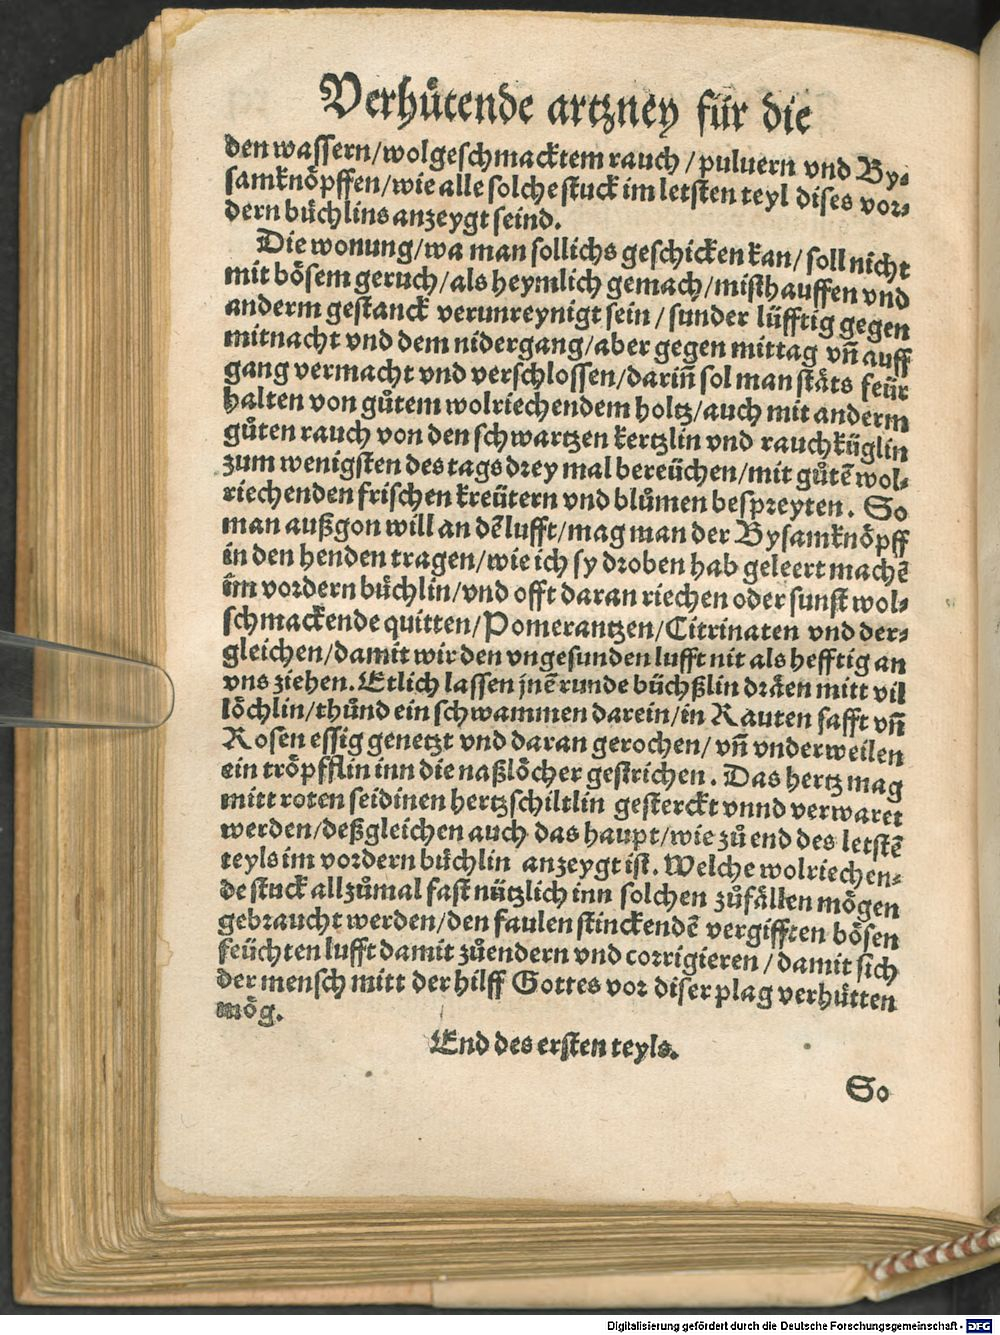 Verhůtende artzney für die
den wassern/wolgeschmacktem rauch/puluern vnd By-
samknöpffen/wie alle solche stuck im letsten teyl dises vor-
dern bůchlins anzeygt seind.
Die wonung/wa man sollichs geschicken kan/soll nicht
mit bösem geruch/als heymlich gemach/misthauffen vnd
anderm gestanck verunreynigt sein/sunder lüfftig gegen
mitnacht vnd dem nidergang/aber gegen mittag vñ auff
gang vermacht vnd verschlossen/dariñ sol man stäts feür
halten von gůtem wolriechendem holtz/auch mit anderm
gůten rauch von den schwartzen kertzlin vnd rauchküglin
zum wenigsten des tags drey mal bereüchen/mit gůtẽ wol-
riechenden frischen kreütern vnd blůmen bespreyten. So
man außgon will an dẽ lufft/mag man der Bysamknöpff
in den henden tragen/wie ich sy droben hab geleert machẽ
im vordern bůchlin/vnd offt daran riechen oder sunst wol-
schmackende quitten/Pomerantzen/Citrinaten vnd der-
gleichen/damit wir den vngesunden lufft nit als hefftig an
vns ziehen. Etlich lassen jnẽ runde büchßlin dräen mitt vil
löchlin/thůnd ein schwammen darein/in Rauten safft vñ
Rosen essig genetzt vnd daran gerochen/vñ vnderweilen
ein tröpfflin inn die naßlöcher gestrichen. Das hertz mag
mitt roten seidinen hertzschiltlin gesterckt vnnd verwaret
werden/deßgleichen auch das haupt/wie zů end des letstẽ
teyls im vordern bůchlin anzeygt ist. Welche wolriechen-
de stuck allzůmal fast nützlich inn solchen zůfällen mögen
gebraucht werden/den faulen stinckendẽ vergifften bösen
feüchten lufft damit zůendern vnd corrigieren/damit sich
der mensch mitt der hilff Gottes vor diser plag verhütten
mög.
End des ersten teyls.
So
Digitalisierung gefördert durch die Deutsche Forschungsgemeinschaft - DFG